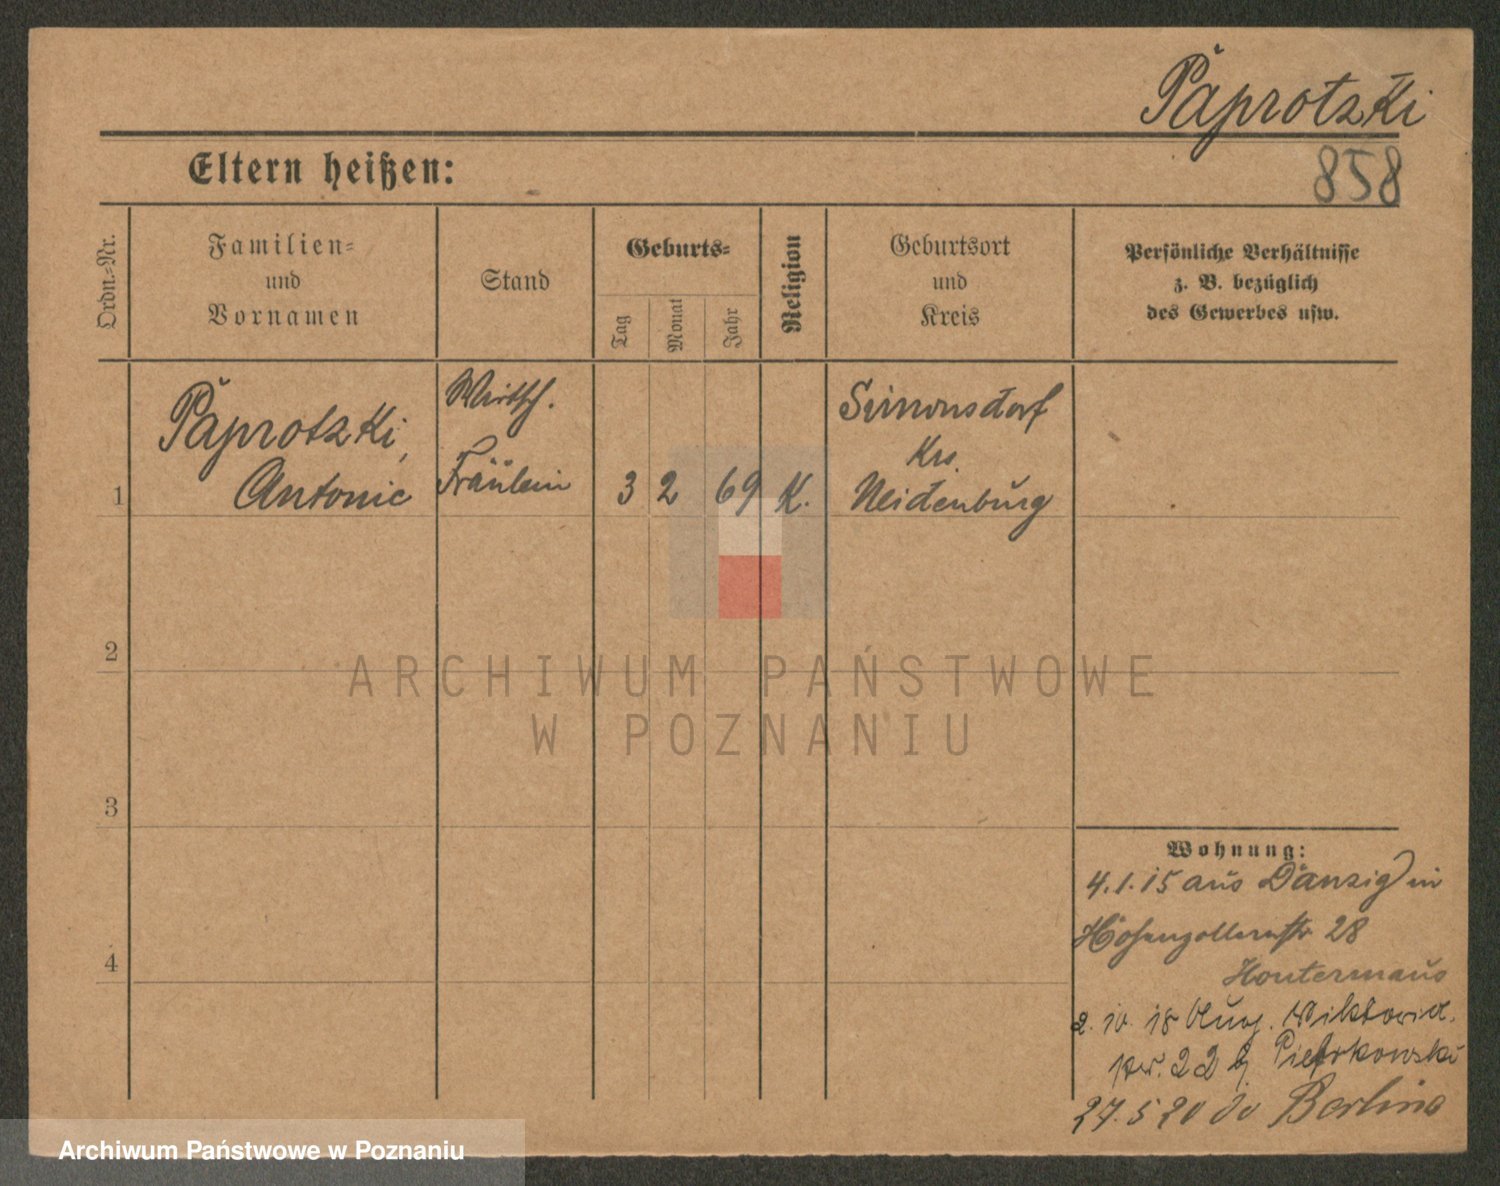 Paprotzki
Eltern heißen:
858
Ordn.-Nr.
Familien-
und
Vornamen
Stand
Geburts-
Tag
Monat
Jahr
Religion
Geburtsort
und
Kreis
Persönliche Verhältnisse
z. B. bezüglich
des Gewerbes usw.
1
Paprotzki,
Antonie
Wirtsch.
Fräulein
3 2 69 K.
Simonsdorf
Krs.
Neidenburg
2
3
4
Wohnung:
4.1.15 aus Danzig in
Hohenzollernstr 28
Houtermans
2. 10. 18 Aug. Wiktoria
22 Pietrkowski
27.5 20 do Berlina
ARCHIWUM PAŃSTWOWE
W POZNANIU
Archiwum Państwowe w Poznaniu